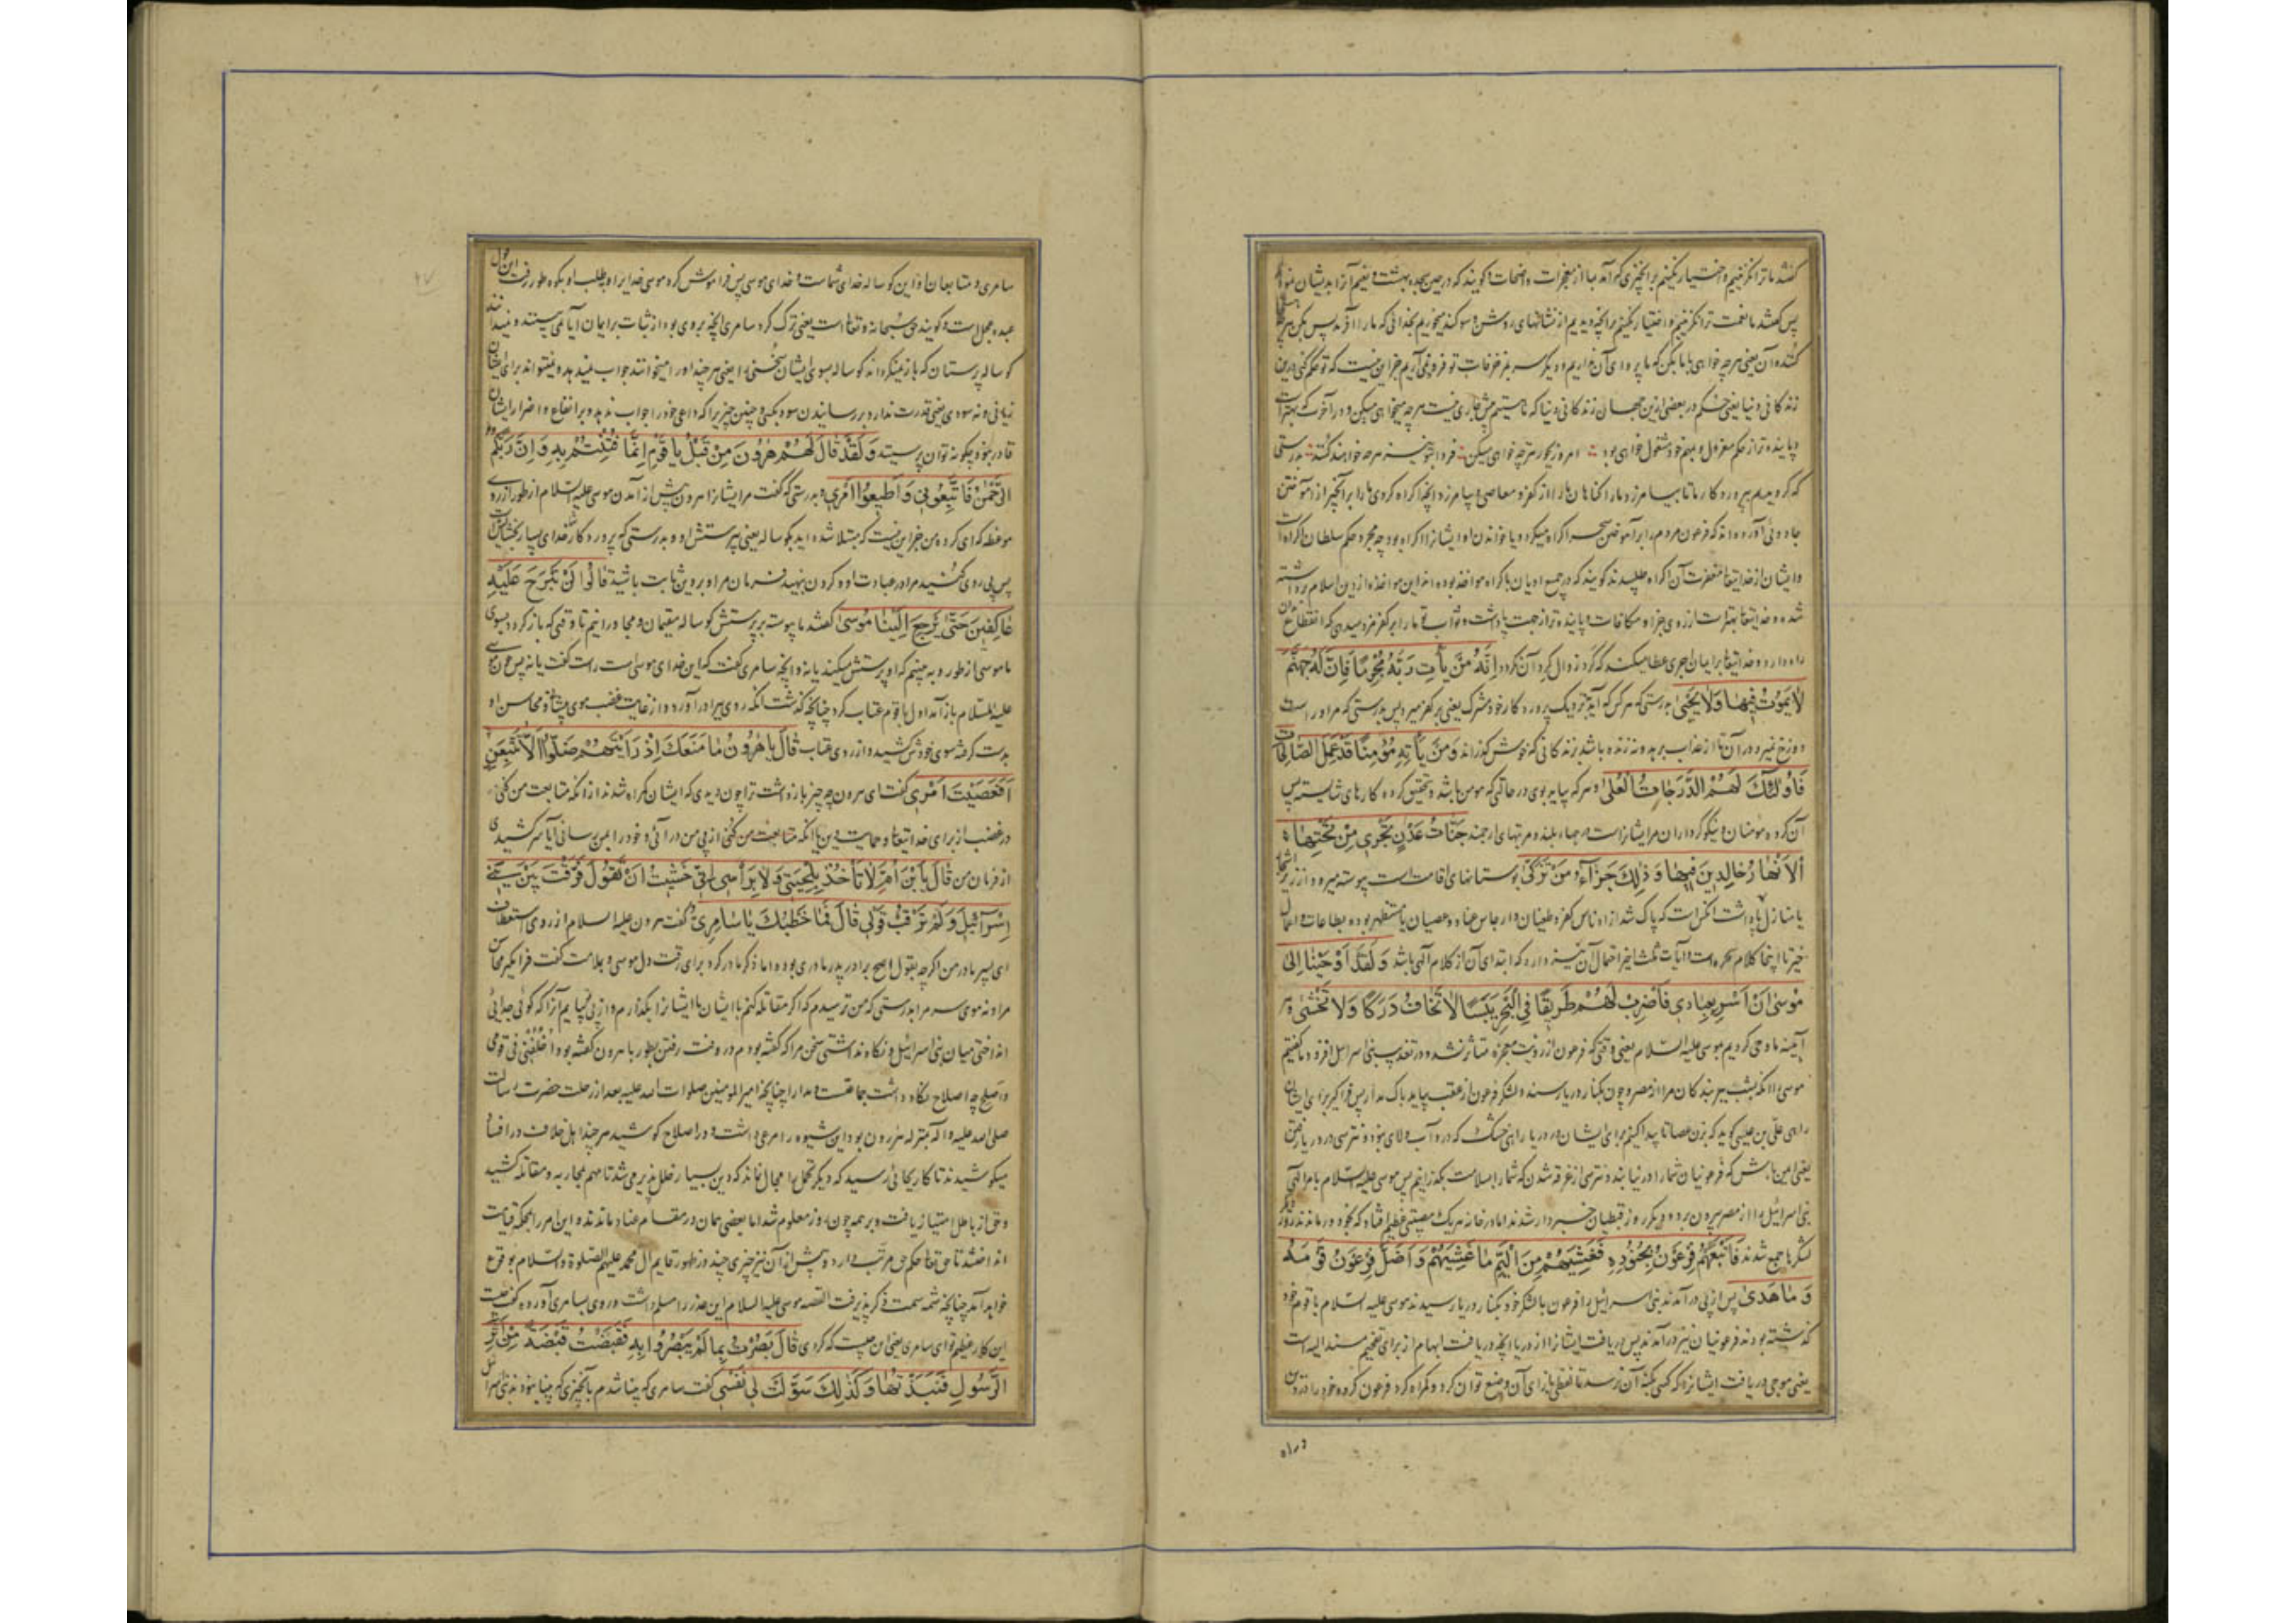 گفتند ما ترا نگزینیم و اختیار نکنیم بر آنچیزی که آمد بما از معجزات واضحات و گویند که در حین سجده بهشت و نعیم آنرا بدیشان نمودند
پس گفتند ما نعمت ترا نگزینیم و اختیار نکنیم بر آنچه دیدیم از نشانهای روشن و سوگند میخوریم بخدائی که ما را آفرید پس بکن هر چه
کننده آن یعنی هر چه خواهی با ما بکن که ما پروای آن نداریم و دیگر سر بمزخرفات تو فرو نمی آریم جز این نیست که تو حکم کنی درین
زندگانی دنیا یعنی حکم در بعضی ازین جهان زندگانی دنیا که هر چه میخواهی میکن و در آخرت که بهتر است
و پاینده تر از حکم معزول و بهم خود مشغول خواهی بود امروز بجور هر چه خواهی میکن فردا بتو نیز هر چه خواهند کنند بدرستی
که گرویدیم بپروردگار ما تا بیامرزد ما را گناهان ما را از کفر و معاصی و بیامرزد آنچه اکراه کردی ما را بر آنچیز از آموختن
جادوئی آورده اند که فرعون مردم را بر آموختن سحر اکراه میکرد و یا خواندن او ایشانرا اکراه بود چه مجرد حکم سلطان اکراه است
و ایشان از خدایتعا مغفرت آن اکراه طلبیدند گویند که در جمیع ادیان باکراه مواخذ بوده اند این مواخذه از دین اسلام برداشته
شده و خدایتعا بهتر است از روی جزا و مکافات و پاینده تر از جهت پاداشت و ثواب تو ما را بر کفر مزد میدهی که انقطاع بدان
راه دارد و خدایتعا بر ایمان اجری عطا میکند که گرد زوال گرد آن نگردد اِنَّهُ مَنْ يَأْتِ رَبَّهُ مُجْرِمًا فَاِنَّ لَهُ جَهَنَّمَ
لَا يَمُوتُ فِيهَا وَلَا يَحْيَى بدرستی که هر کس که آید نزدیک پروردگار خود مشرک یعنی بر کفر میرد پس بدرستی که مر او راست
دوزخ نمیرد در آن تا از عذاب برهد و نه زنده باشد بزندگانی که خوش گذراند وَمَنْ يَأْتِهِ مُؤْمِنًا قَدْ عَمِلَ الصَّالِحَاتِ
فَاُولٰئِكَ لَهُمُ الدَّرَجَاتُ الْعُلٰى و هر که بیاید بوی در حالتی که مومن باشد و بتحقیق کرده کارهای شایسته پس
آن گروه مومنان و نیکوکرداران مر ایشانراست درجهاء بلند و مرتبهای ارجمند جَنَّاتُ عَدْنٍ تَجْرِي مِنْ تَحْتِهَا
الْاَنْهَارُ خَالِدِينَ فِيهَا وَذٰلِكَ جَزَاءُ مَنْ تَزَكّٰى بوستانهای اقامت است پیوسته میرود از زیر اشجار
یا منازل پاداشت آنکس است که پاک شد از ادناس کفر و طغیان و ارجاس عناد و عصیان یا متطهر بوده بطاعات و اعمال
خیر تا اینجا کلام سحره است و آیات ثلث اخیر احتمال آن نیز دارد که ابتدای آن از کلام آلهی باشد وَلَقَدْ اَوْحَيْنَا اِلٰى
مُوسٰى اَنْ اَسْرِ بِعِبَادِي فَاضْرِبْ لَهُمْ طَرِيقًا فِي الْبَحْرِ يَبَسًا لَا تَخَافُ دَرَكًا وَلَا تَخْشٰى و هر
آینه ما وحی کردیم بموسی علیه السلام یعنی وقتی که فرعون از رؤیت معجزه متأثر نشد و در تعذیب بنی اسرائیل افزود ما گفتیم
موسی را آنکه بشب ببر بندگان مرا از مصر و چون بکنار دریا رسند و لشکر فرعون از عقب بیاید باک مدار پس فراگیر برای ایشان
راهی علی بن عیسی گوید که بزن عصا تا پیدا کنیم برای ایشان در دریا راهی خشک که درو آب و لای نبود و نترسی در دریا رفتن
یعنی ایمن باش که فرعونیان شما را در نیابند و نترسی از غرقه شدن که شما را بسلامت بگذرانیم پس موسی علیه السلام بامر الهی
بنی اسرائیل را از مصر بیرون برد و دیگر روز قبطیان خبردار شدند اما در خانه هر یک مصیبتی عظیم افتاد که بخود درماندند روز دیگر
لشکرها جمع شدند فَاَتْبَعَهُمْ فِرْعَوْنُ بِجُنُودِهِ فَغَشِيَهُمْ مِنَ الْيَمِّ مَا غَشِيَهُمْ وَاَضَلَّ فِرْعَوْنُ قَوْمَهُ
وَمَا هَدٰى پس از پی در آمدند بنی اسرائیل را فرعون با لشکر خود بکنار دریا رسیدند موسی علیه السلام با قوم خود
گذشته بودند فرعونیان نیز درآمدند پس دریافت ایشانرا از دریا آنچه دریافت ابهام از برای تفخیم مسند الیه است
یعنی موجی دریافت ایشانرا که کسی بکنه آن نرسد تا لفظی بازای آن وضع توان کرد و گمراه کرد فرعون گروه خود را در دین
در راه
۴۷
سامری و متابعان او این گوساله خدای شماست و خدای موسی پس فراموش کرد موسی خدایرا و بطلب او بکوه طور رفت این قول
عبده عجل است و گویند حق سبحانه و تعالی است یعنی ترک کرد سامری آنچه بر وی بود از ثبات بر ایمان آیا نمی بینند و نمیدانند
گوساله پرستان که باز نمیگرداند گوساله بسوی ایشان سخنی را یعنی هر چند او را میخوانند جواب نمیدهد و نمیتواند برای ایشان
زیانی و نه سودی یعنی قدرت ندارد بر رسانیدن سود بکسی و چنین چیزیرا که داعی خود را جواب ندهد و بر انفاع و اضرار ایشان
قادر نبود چگونه توان پرستید وَلَقَدْ قَالَ لَهُمْ هٰرُونُ مِنْ قَبْلُ يَا قَوْمِ اِنَّمَا فُتِنْتُمْ بِهِ وَاِنَّ رَبَّكُمُ
الرَّحْمٰنُ فَاتَّبِعُونِي وَاَطِيعُوا اَمْرِي و بدرستی که گفت مر ایشانرا هرون پیش از آمدن موسی علیه السلام از طور از روی
موعظه که ای گروه من جز این نیست که مبتلا شده اید بگوساله یعنی بپرستش او و بدرستی که پروردگار شما خدای بسیار بخشایش است
پس پی روی کنید مرا در عبادت او و گردن نهید فرمان مرا و بر دین ثابت باشید قَالُوا لَنْ نَبْرَحَ عَلَيْهِ
عَاكِفِينَ حَتّٰى يَرْجِعَ اِلَيْنَا مُوسٰى گفتند ما پیوسته بر پرستش گوساله مقیمان و مجاورانیم تا وقتی که باز گردد بسوی
ما موسی از طور و به بینیم که او پرستش میکند یا نه و آنچه سامری گفت که این خدای موسی است راست گفت یا نه پس چون موسی
علیه السلام باز آمد اول با قوم عتاب کرد چنانچه گذشت آنگه روی ببرادر آورد و از غایت غضب موی پیشانی و محاسن او
بدست گرفته سوی خودش کشید و از روی عتاب قَالَ يَا هٰرُونُ مَا مَنَعَكَ اِذْ رَاَيْتَهُمْ ضَلُّوا اَلَّا تَتَّبِعَنِ
اَفَعَصَيْتَ اَمْرِي گفت ای هرون چه چیز بازداشت ترا چون دیدی که ایشان گمراه شدند از آنکه متابعت من کنی
در غضب از برای خدایتعا و حمایت دین یا آنکه متابعت من کنی از پی من در آئی و خود را بمن رسانی آیا سر کشیدی
از فرمان من قَالَ يَا ابْنَ اُمَّ لَا تَأْخُذْ بِلِحْيَتِي وَلَا بِرَأْسِي اِنِّي خَشِيتُ اَنْ تَقُولَ فَرَّقْتَ بَيْنَ بَنِي
اِسْرَآئِيلَ وَلَمْ تَرْقُبْ قَوْلِي قَالَ فَمَا خَطْبُكَ يَا سَامِرِيُّ گفت هرون علیه السلام از روی استعطاف
ای پسر مادر من اگر چه بقول اصح برادر پدر مادری بوده اما ذکر مادر کرد برای رقت دل موسی و بملامت گفت فرا مگیر محاسن
مرا و نه موی سر مرا بدرستی که من ترسیدم که اگر مقاتله کنم با ایشان یا ایشانرا بگذارم و از پی تو بیایم آنرا که گوئی جدائی
انداختی میان بنی اسرائیل و نگاه نداشتی سخن مرا که گفته بودم در وقت رفتن بطور با هرون گفته بود اُخْلُفْنِي فِي قَوْمِي
وَاَصْلِحْ چه اصلاح نگاه داشت جماعتست و مدارا چنانچه امیرالمومنین صلوات الله علیه بعد از رحلت حضرت رسالت
صلی الله علیه و آله بمنزله هرون بود این شیوه را مرعی داشت و در اصلاح کوشید هر چند اهل خلاف در افساد
میکوشیدند تا کار بجائی رسید که دیگر تحمل را مجال نماند که دین بسیار خلل پذیر می شد تا مهم بمحاربه و مقاتله کشید
و حق از باطل امتیاز یافت و بر همه چون روز معلوم شد اما بعضی همان در مقام عناد ماندند و این امر را بحکم قیامت
انداختند تا حق تعا حکم حق مرتب دارد و پیش از آن نیز چیزی چند در ظهور قایم آل محمد علیهم الصلوة و السلام بوقوع
خواهد آمد چنانچه شمه سمت ذکر پذیرفت القصه موسی علیه السلام این عذر را مسلم داشت و روی بسامری آورده گفت چیست
این کار عظیم تو ای سامری یعنی این چیست که کردی قَالَ بَصُرْتُ بِمَا لَمْ يَبْصُرُوا بِهِ فَقَبَضْتُ قَبْضَةً مِنْ اَثَرِ
الرَّسُولِ فَنَبَذْتُهَا وَكَذٰلِكَ سَوَّلَتْ لِي نَفْسِي گفت سامری که بینا شدم بآنچیزی که بینا نبودند بنی اسرائیل